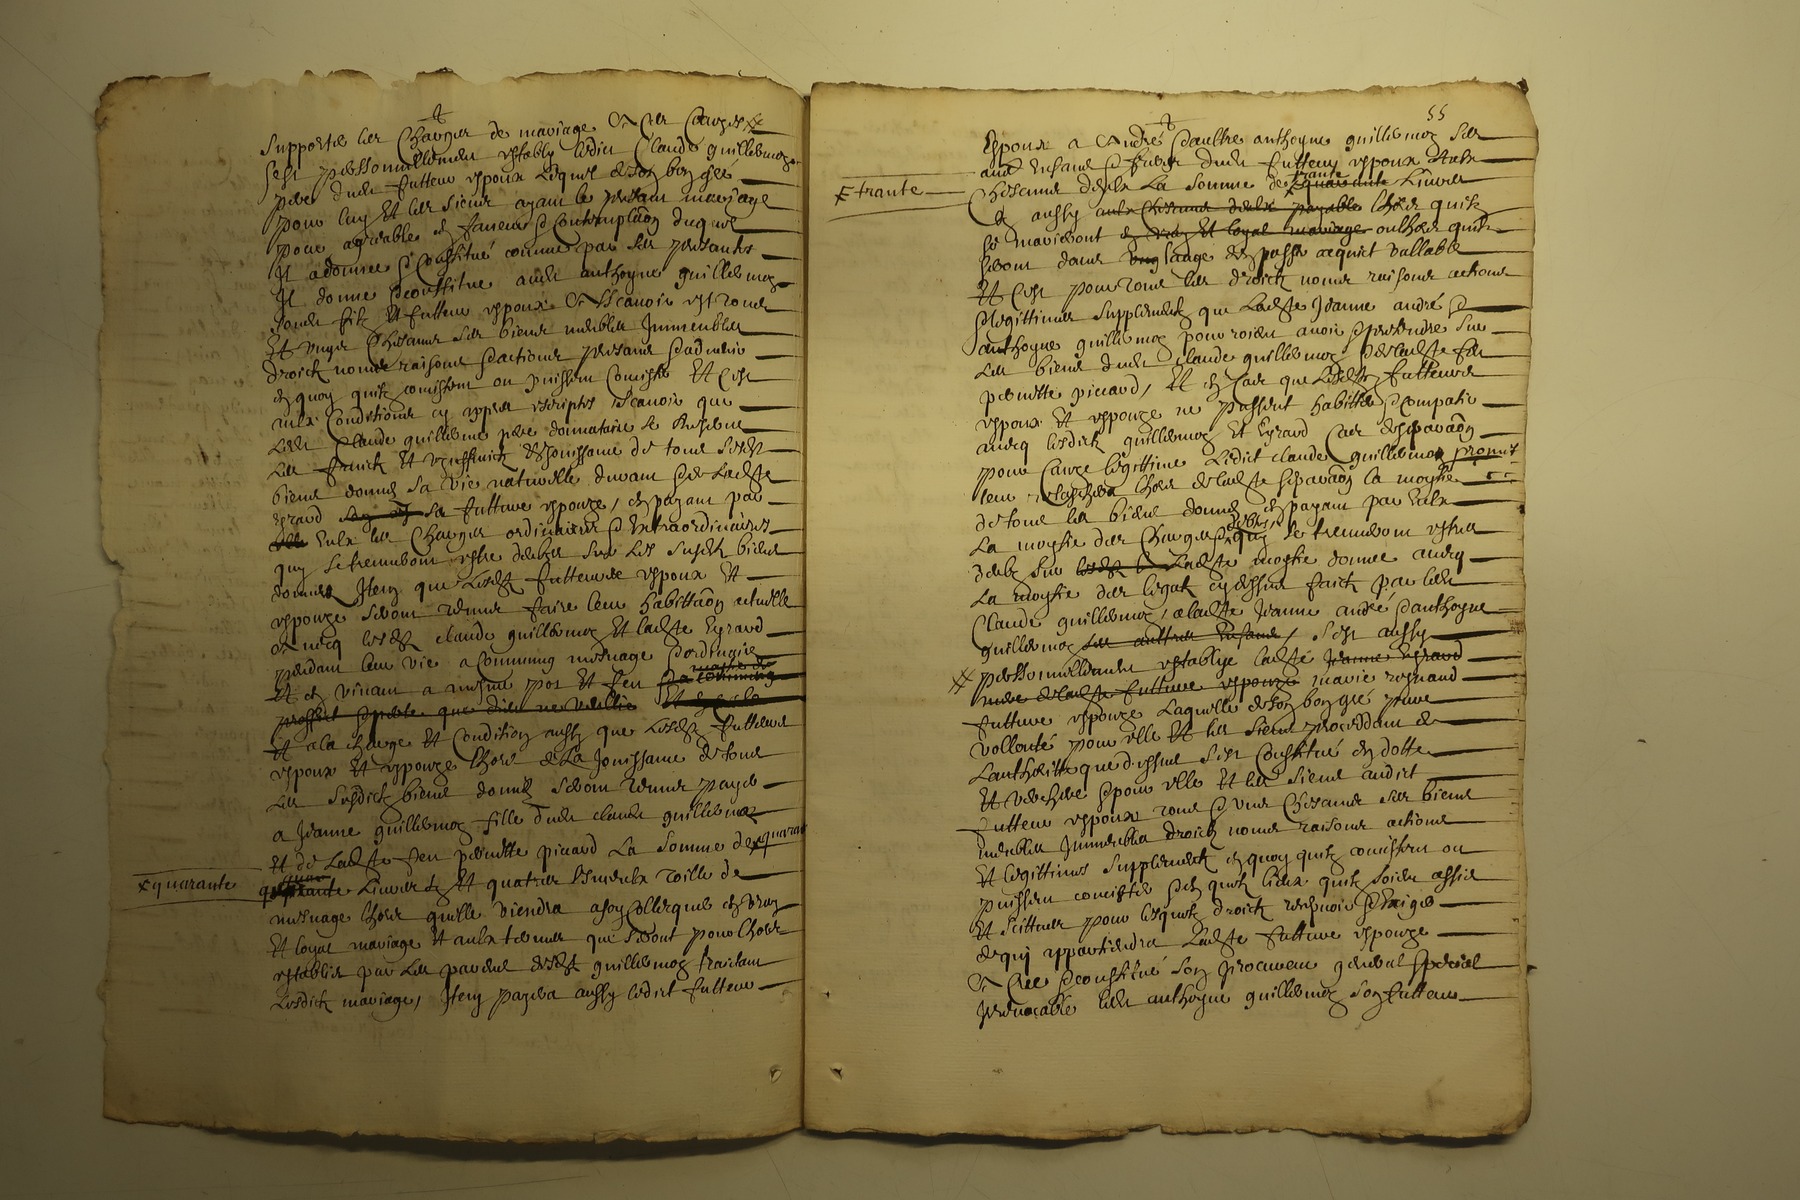 supporter les charges de mariage Et Ces Causes
sest personnellement establÿ ledict Claude guilliermoz
pere dudit futteur espoux lequel de son bon gré
pour luy Et les siens ayant le present mariage
pour agreable Et faveur Contemplaōn duquel
Il a donné & Constitué comme par ces presantes
Il donne & constitue audit anthoyne guilliermoz
sondit filz Et futteur espoux Et scavoir est tous
Et ungs Chescuns ses biens meubles Immeubles
droictz noms raisons & actions presans & advenir
En quoy quilz consistent ou puissent Consister Et Cest
aulx Conditions cy appres escriptes scavoir que
ledit Claude guillierme pere donnataire se Reserve
les fruictz Et usuffruictz & Jouissance de tous sesdits
biens donnés sa vie naturelle durant & de ladte
Eyrard sa future espouze, En payant par
Eulx les Charges ordinaires & Extraordinaires
quy se treuveront estre deubz sur les susdits biens
donnés Item que lesdts futteurs espoux Et
espouze seront tenus faire leur habittaōn actuelle
avecq lesdts claude guilliermoz Et ladte Eyrard
pendant leur vie a Commung mesnage & ordinaire
Et En vivant a mesme pot Et feu
proffict & perte que dieu ne veullie
Et a la charge Et Condition aussy que lesdts futteurs
espoux Et espouze lhors de La Jouissance de tous
les susdictz biens donnés seront tenus payer
a Jeanne guilliermoz fille dudit claude guilliermoz
Et de Ladte feu pernette piccard La somme de quarante
livres tz Et quatre linceulx toille de
mesnage lhors quelle viendra a soy Collocquer En vray
Et loyal mariage Et aulx termes que seront pour lhors
establis par les parens desdts guilliermoz traictant
lesdictz mariage, Item payera aussy ledict futteur
x quarante
55
Espoux a André & aultre anthoyne guilliermoz ses
aud Enfans & freres dudit futteur espoux a un
Chescung deulx La somme de trante Livres
tz aussy aulx Chescung deulx payable lhors quilz
se marieront En vray Et loyal mariage ou lhors quilz
seront dans eage de passer acquict vallable
Et Cest pour tous les droictz noms raisons actions
& legittimes supplement que Ladte Jeanne andré &
anthoyne guilliermoz pourroient avoir & pretendre sur
les biens dudit claude guilliermoz & de ladte feu
pernette piccard, Et En Cas que lesdts futteurs
espoux Et espouze ne pussent habitter & compatir
avecq lesdictz guilliermoz Et Eyrard Cas de separaōn
pour Cause legittime Ledict claude guilliermoz promet
leur relascher lhors de ladte separaōn la moytié
de tous les biens donnés En payant par Eulx
La moytié des Charges & debtes quy se treuveront estre
deubz sur Ladte moytié donnee avecq
La moytié des legatz cy dessus faictz par ledit
Claude guilliermoz, a ladte Jeanne andré & anthoyne
guilliermoz ses aultres Enfans, sest aussy
personnellement establye ladte Jeanne Eyrard
mere de ladte future espouze marie reynaud
future espouze Laquelle de son bon gré pure
vollonté pour elle Et les siens procedant de
Lauthoritté que dessus sest Constitué En dotte
Et verchere & pour elle Et les siens audict
futteur espoux tous & ungs Chescuns ses biens
meubles Immeubles droictz noms raisons actions
Et legittimes supplement En quoy quilz consistent ou
puissent consister & En quelz lieux quilz soient assis
Et scittues pour lesquelz droictz recepvoir & Exiger
de qui appartiendra Ladte future espouze
a Cree & constitué son procureur general special
Irrevocable ledit anthoyne guilliermoz son futteur
x trante